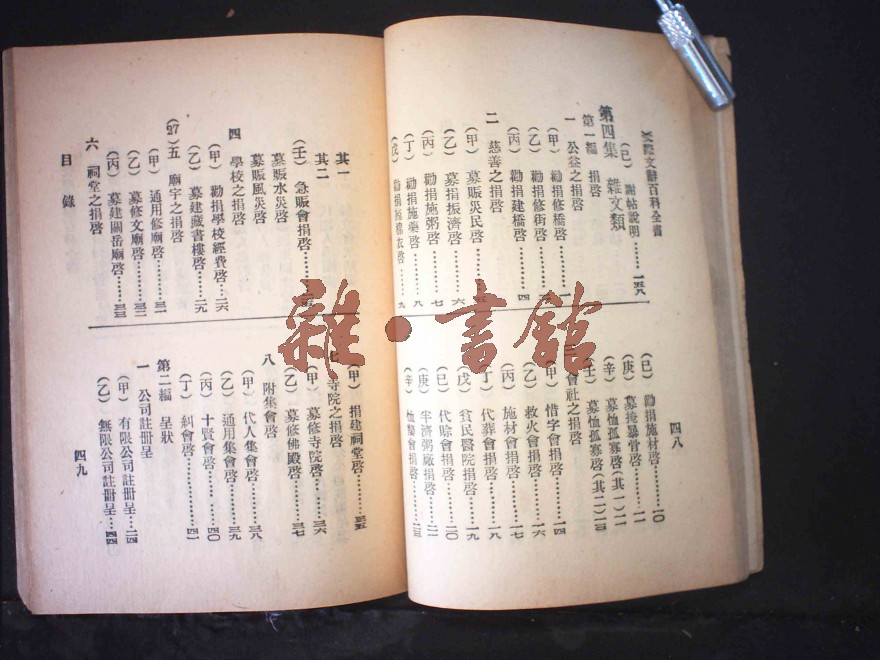 文辭百科全書
（己）謝帖說明………一五八
第四集 雜文類
第一編 捐啓
一 公益之捐啓
（甲）勸捐修橋啓………一
（乙）勸捐修街啓
（丙）勸捐建橋啓………四
二 慈善之捐啓
（甲）募賑災民啓
（乙）募捐振濟啓………六
（丙）勸捐施粥啓………七
（丁）勸捐施藥啓………八
（戊）勸捐施棉衣啓………九
四八
（己）勸捐施材啓………一〇
（庚）募掩暴骨啓………一一
（辛）募恤孤寡啓（其一）一一
（壬）募恤孤寡啓（其二）一三
會社之捐啓
（甲）惜字會捐啓………一四
（乙）救火會捐啓………一六
（丙）施材會捐啓………一七
（丁）代葬會捐啓………一八
（戊）貧民醫院捐啓………一九
（己）代賒會捐啓………二〇
（庚）平濟粥廠捐啓………二一
（辛）恤嫠會捐啓………二三
（壬）急賑會捐啓
募賑水災啓
募賑風災啓
其一
其二
四 學校之捐啓
（甲）勸捐學校經費啓………二六
（乙）募建藏書樓啓………二九
(27) 五 廟宇之捐啓
（甲）通用修廟啓………三一
（乙）募修文廟啓………三二
（丙）募建關岳廟啓………三三
六 祠堂之捐啓
目錄
（甲）捐建祠堂啓………三五
七 寺院之捐啓
（甲）募修寺院啓………三六
（乙）募修佛殿啓………三七
八 附集會啓
（甲）代人集會啓………三八
（乙）通用集會啓………三九
（丙）十賢會啓………四〇
（丁）糾會啓………四一
第二編 呈狀
一 公司註冊呈
（甲）有限公司註冊呈…二四
（乙）無限公司註冊呈…四四
四九
雜·書館